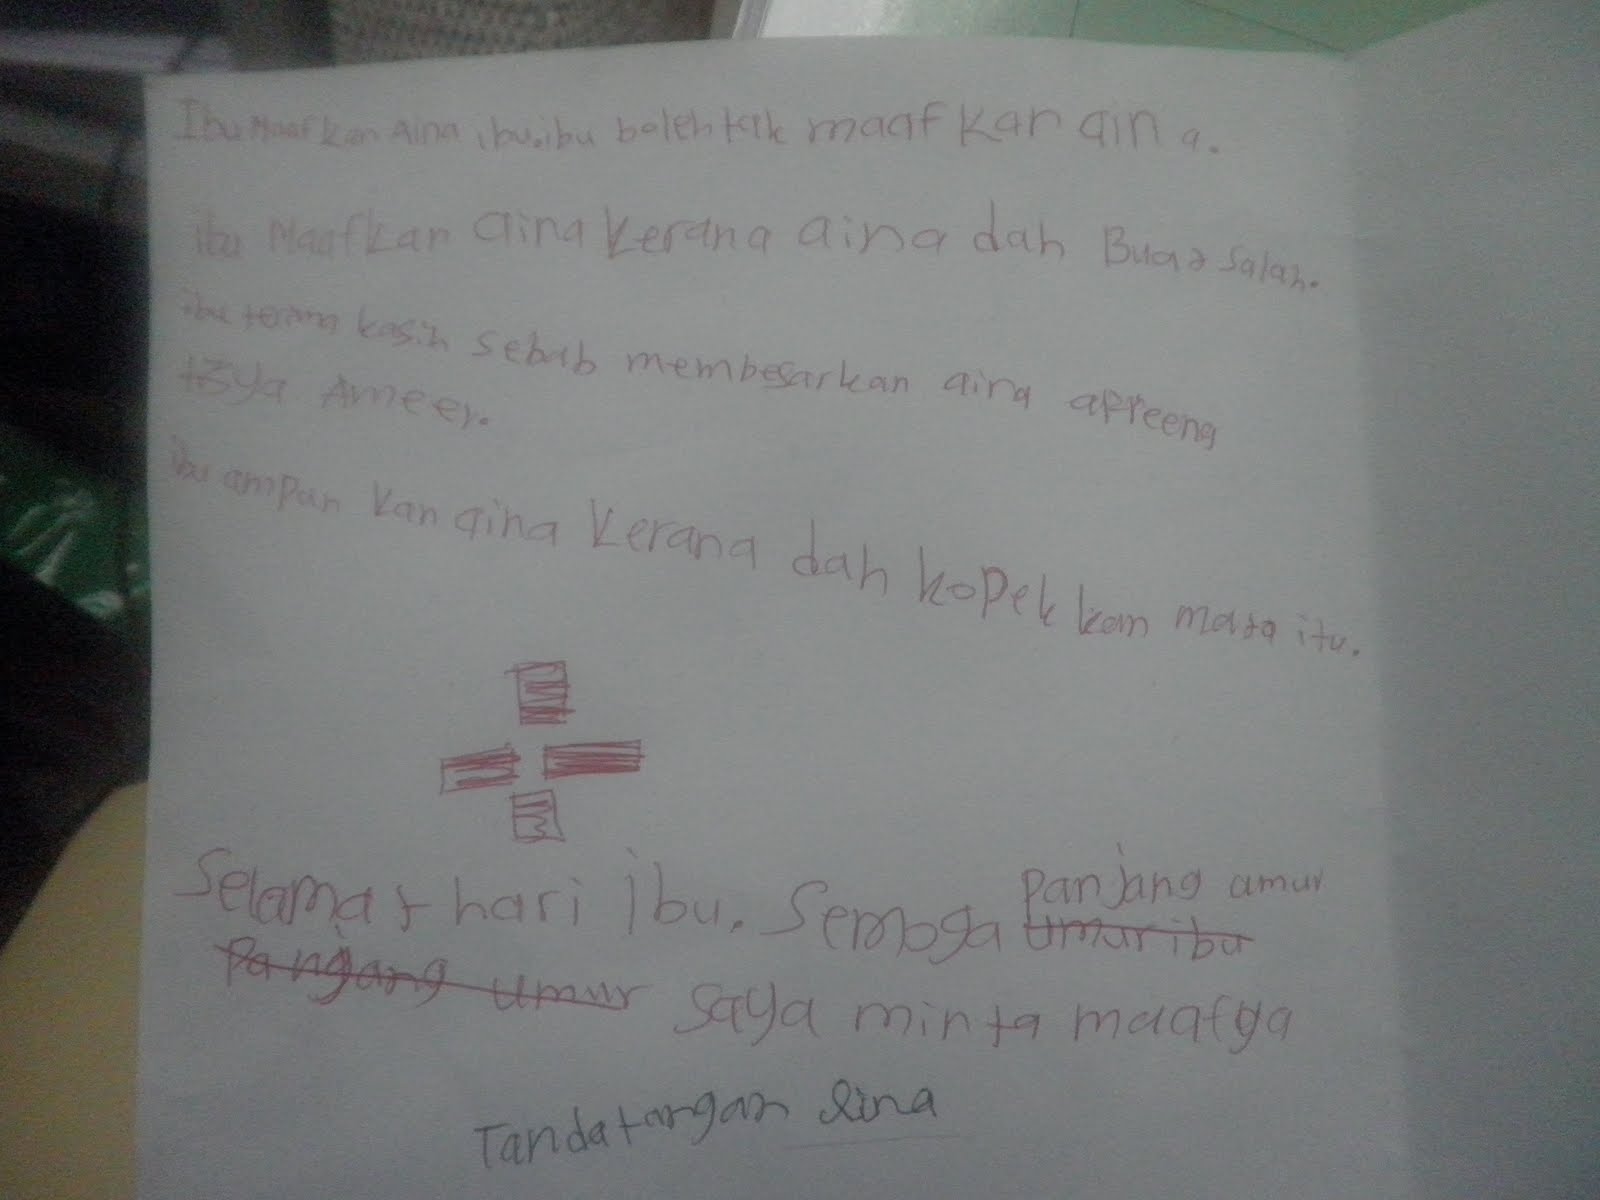 Ibu Maafkan Aina ibu. ibu boleh tak maafkan aina.
ibu Maafkan aina kerana aina dah Buat salah.
ibu terima kasih sebab membesarkan aina
Ameer.
ibu ampan kan aina kerana dah kopek kan mata itu.
Selamat hari ibu. Semoga panjang umur
umur ibu
Pangjang umur saya minta maafya
Tandatangan Aina